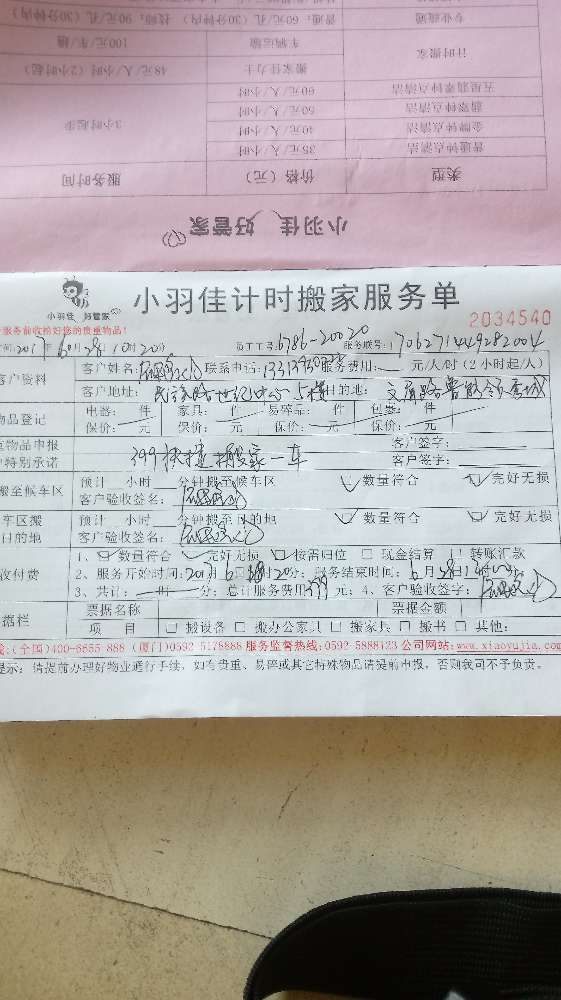 专业疏通
普通：60元/孔（30分钟内） 技师：90元/孔（30分钟内）
计时搬家
车辆运输
100元/车/趟
搬家佳力士
48元/人/小时（2小时起）
五星翡翠钟点清洁
60元/人/小时
翡翠钟点清洁
50元/人/小时
金牌钟点清洁
40元/人/小时
3小时起步
普通钟点清洁
35元/人/小时
类型
价格（元）
服务时间
小羽佳 好管家
小羽佳 好管家
小羽佳计时搬家服务单
服务前收拾好您的贵重物品！
2034540
间:2017年6月28日10时20分
员工工号:6786-20020
服务账号:1706271449282004
客户资料
客户姓名: 联系电话: 服务费用: 元/人/时(2小时起/人)
客户地址: 5楼 目的地:
物品登记
电器： 件 家具： 件 易碎品： 件 包裹： 件
保价： 元 保价： 元 保价： 元 保价： 元
物品申报
特别承诺
399 搬家一车
客户签字：
客户签字：
搬至候车区
预计 小时 分钟搬至候车区
数量符合 完好无损
客户验收签名：
车区搬
目的地
预计 小时 分钟搬至目的地
数量符合 完好无损
客户验收签名：
收付费
1、数量符合 完好无损 按需归位 现金结算 转账汇款
2、服务开始时间:2017年6月28日 20分；服务结束时间：6月28日
3、共计： 时 分；总计服务费用399元；4、客户验收签字：
据栏
票据名称
票据金额
项 目
搬设备 搬办公家具 搬家具 搬书 其他：
:(全国)400-6855 888 (厦门)0592 5178888 服务监督热线:0592 5888123 公司网站:www.xiaoyujia.com
提示：请提前办理好物业通行手续，如有贵重、易碎或其它特殊物品请提前申报，否则我司不予负责。